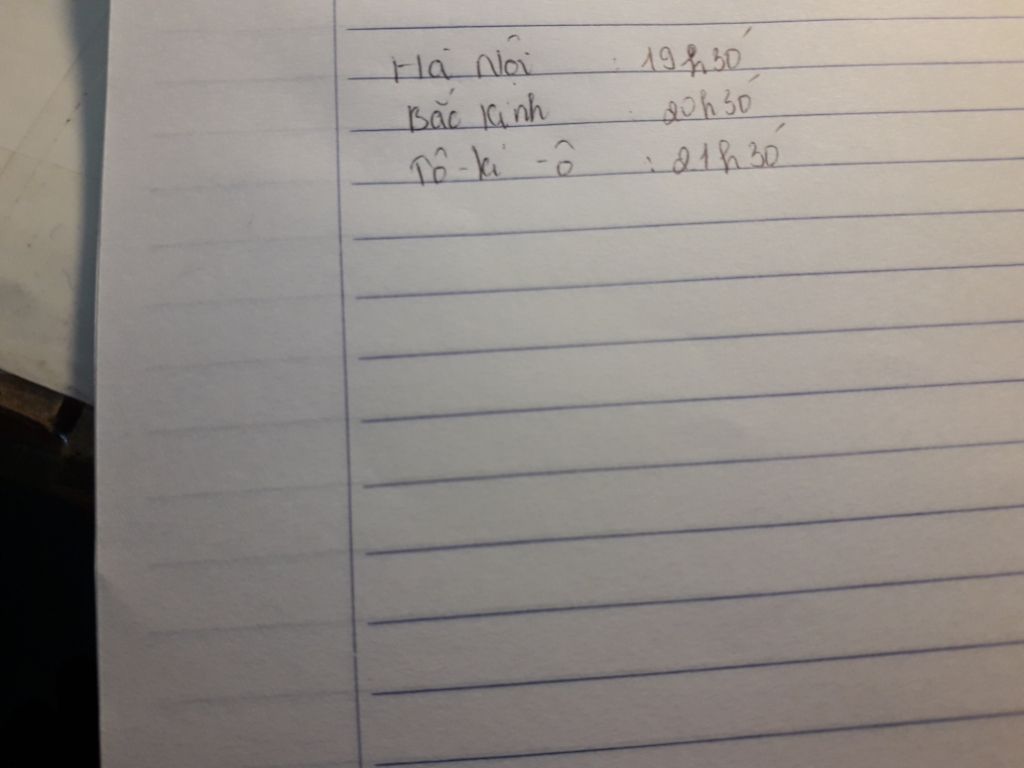 Hà Nội : 19h30'
Bắc Kinh : 20h30'
Tô-ki-ô : 21h30'